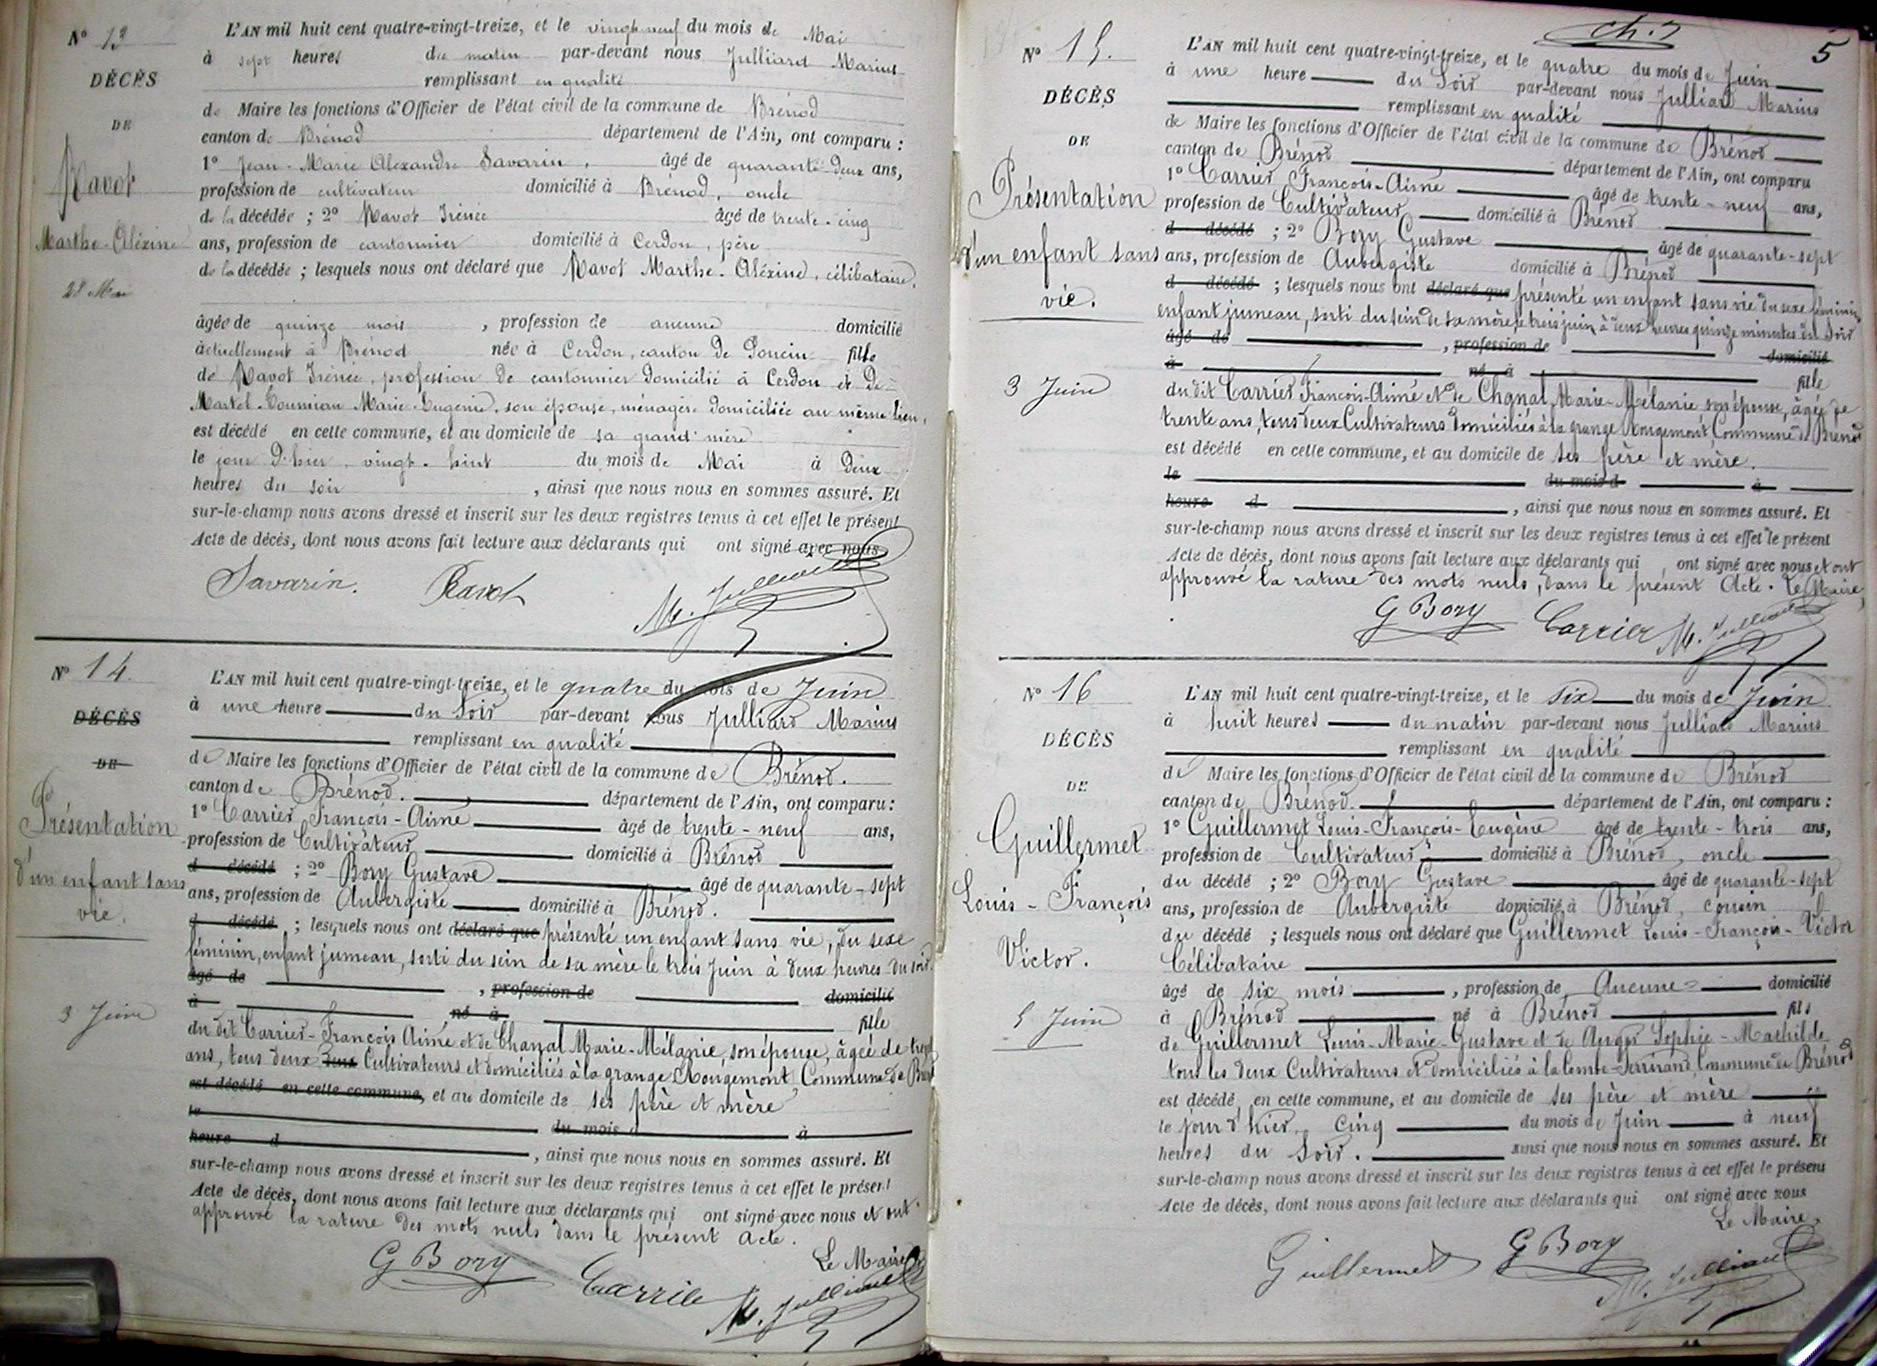 N° 13
DÉCÈS
DE
Ravot
Marthe-Alézine
28 Mai
L'AN mil huit cent quatre-vingt-treize, et le vingt neuf du mois de Mai
à sept heures du matin par-devant nous Julliard Marius
remplissant en qualité
de Maire les fonctions d'Officier de l'état civil de la commune de Brénod
canton de Brénod département de l'Ain, ont comparu :
1° Jean-Marie Alexandre Savarin, âgé de quarante-deux ans,
profession de cultivateur domicilié à Brénod, oncle
de la décédée ; 2° Ravot Irénée âgé de trente-cinq
ans, profession de cantonnier domicilié à Cerdon, père
de la décédée ; lesquels nous ont déclaré que Ravot Marthe-Alézine, célibataire,
âgée de quinze mois , profession de aucune domicilié
actuellement à Brénod née à Cerdon, canton de Poncin fille
de Ravot Irénée, profession de cantonnier domicilié à Cerdon et de
Martel-Toumian Marie-Eugénie, son épouse, ménagère domiciliée au même lieu,
est décédé en cette commune, et au domicile de sa grand'mère
le jour d'hier, vingt-huit du mois de Mai à deux
heures du soir , ainsi que nous nous en sommes assuré. Et
sur-le-champ nous avons dressé et inscrit sur les deux registres tenus à cet effet le présent
Acte de décès, dont nous avons fait lecture aux déclarants qui ont signé avec nous
Savarin. Ravot M. Julliard
N° 14
DÉCÈS
DE
Présentation
d'un enfant sans
vie.
3 Juin
L'AN mil huit cent quatre-vingt-treize, et le quatre du mois de Juin
à une heure du Soir par-devant nous Julliard Marius
remplissant en qualité
de Maire les fonctions d'Officier de l'état civil de la commune de Brénod.
canton de Brénod. département de l'Ain, ont comparu :
1° Carrier François-Aimé âgé de trente-neuf ans,
profession de Cultivateur domicilié à Brénod
d décédé ; 2° Bory Gustave âgé de quarante-sept
ans, profession de Aubergiste domicilié à Brénod.
d décédé ; lesquels nous ont déclaré que présenté un enfant sans vie, du sexe
féminin, enfant jumeau, sorti du sein de sa mère le trois Juin à deux heures du soir.
âgé de , profession de domicilié
à né à fille
du dit Carrier-François Aimé et de Chanal Marie-Mélanie, son épouse, âgée de trente
ans, tous deux deux Cultivateurs et domiciliés à la grange Rougemont Commune de Brénod
est décédé en cette commune, et au domicile de ses père et mère
le du mois d à
heure d , ainsi que nous nous en sommes assuré. Et
sur-le-champ nous avons dressé et inscrit sur les deux registres tenus à cet effet le présent
Acte de décès, dont nous avons fait lecture aux déclarants qui ont signé avec nous et ont
approuvé la rature des mots nuls dans le présent acte.
Le Maire
G Bory Carrier M. Julliard
ch. 7
5
N° 15.
DÉCÈS
DE
Présentation
d'un enfant sans
vie.
3 Juin
L'AN mil huit cent quatre-vingt-treize, et le quatre du mois de Juin
à une heure du Soir par-devant nous Julliard Marius
remplissant en qualité
de Maire les fonctions d'Officier de l'état civil de la commune de Brénod
canton de Brénod département de l'Ain, ont comparu
1° Carrier François-Aimé âgé de trente-neuf ans,
profession de Cultivateur domicilié à Brénod
d décédé ; 2° Bory Gustave âgé de quarante-sept
ans, profession de Aubergiste domicilié à Brénod
d décédé ; lesquels nous ont déclaré que présenté un enfant sans vie du sexe féminin,
enfant jumeau, sorti du sein de sa mère le trois juin à deux heures quinze minutes du Soir
âgé de , profession de domicilié
à né à fille
du dit Carrier François-Aimé et de Chanal Marie-Mélanie son épouse, âgée de
trente ans, tous deux Cultivateurs domiciliés à la grange Rougemont Commune de Brénod
est décédé en cette commune, et au domicile de ses père et mère.
le du mois d à
heure d , ainsi que nous nous en sommes assuré. Et
sur-le-champ nous avons dressé et inscrit sur les deux registres tenus à cet effet le présent
Acte de décès, dont nous avons fait lecture aux déclarants qui , ont signé avec nous et ont
approuvé la rature des mots nuls, dans le présent Acte. Le Maire,
G Bory Carrier M. Julliard
N° 16
DÉCÈS
DE
Guillermet
Louis-François
Victor.
5 Juin
L'AN mil huit cent quatre-vingt-treize, et le six du mois de Juin
à huit heures du matin par-devant nous Julliard Marius
remplissant en qualité
de Maire les fonctions d'Officier de l'état civil de la commune de Brénod
canton de Brénod. département de l'Ain, ont comparu :
1° Guillermet Louis-François-Eugène âgé de trente-trois ans,
profession de Cultivateur domicilié à Brénod, oncle
du décédé ; 2° Bory Gustave âgé de quarante-sept
ans, profession de Aubergiste domicilié à Brénod, cousin
du décédé ; lesquels nous ont déclaré que Guillermet Louis-François-Victor
Célibataire
âgé de six mois , profession de Aucune domicilié
à Brénod né à Brénod fils
de Guillermet Louis-Marie-Gustave et de Auger Sophie-Mathilde
tous les deux Cultivateurs et domiciliés à la Combe-Ferrirand Commune de Brénod
est décédé en cette commune, et au domicile de ses père et mère
le jour d'hier, cinq du mois de Juin à neuf
heures du Soir. ainsi que nous nous en sommes assuré. Et
sur-le-champ nous avons dressé et inscrit sur les deux registres tenus à cet effet le présent
Acte de décès, dont nous avons fait lecture aux déclarants qui ont signé avec nous
Le Maire,
Guillermet G Bory M. Julliard